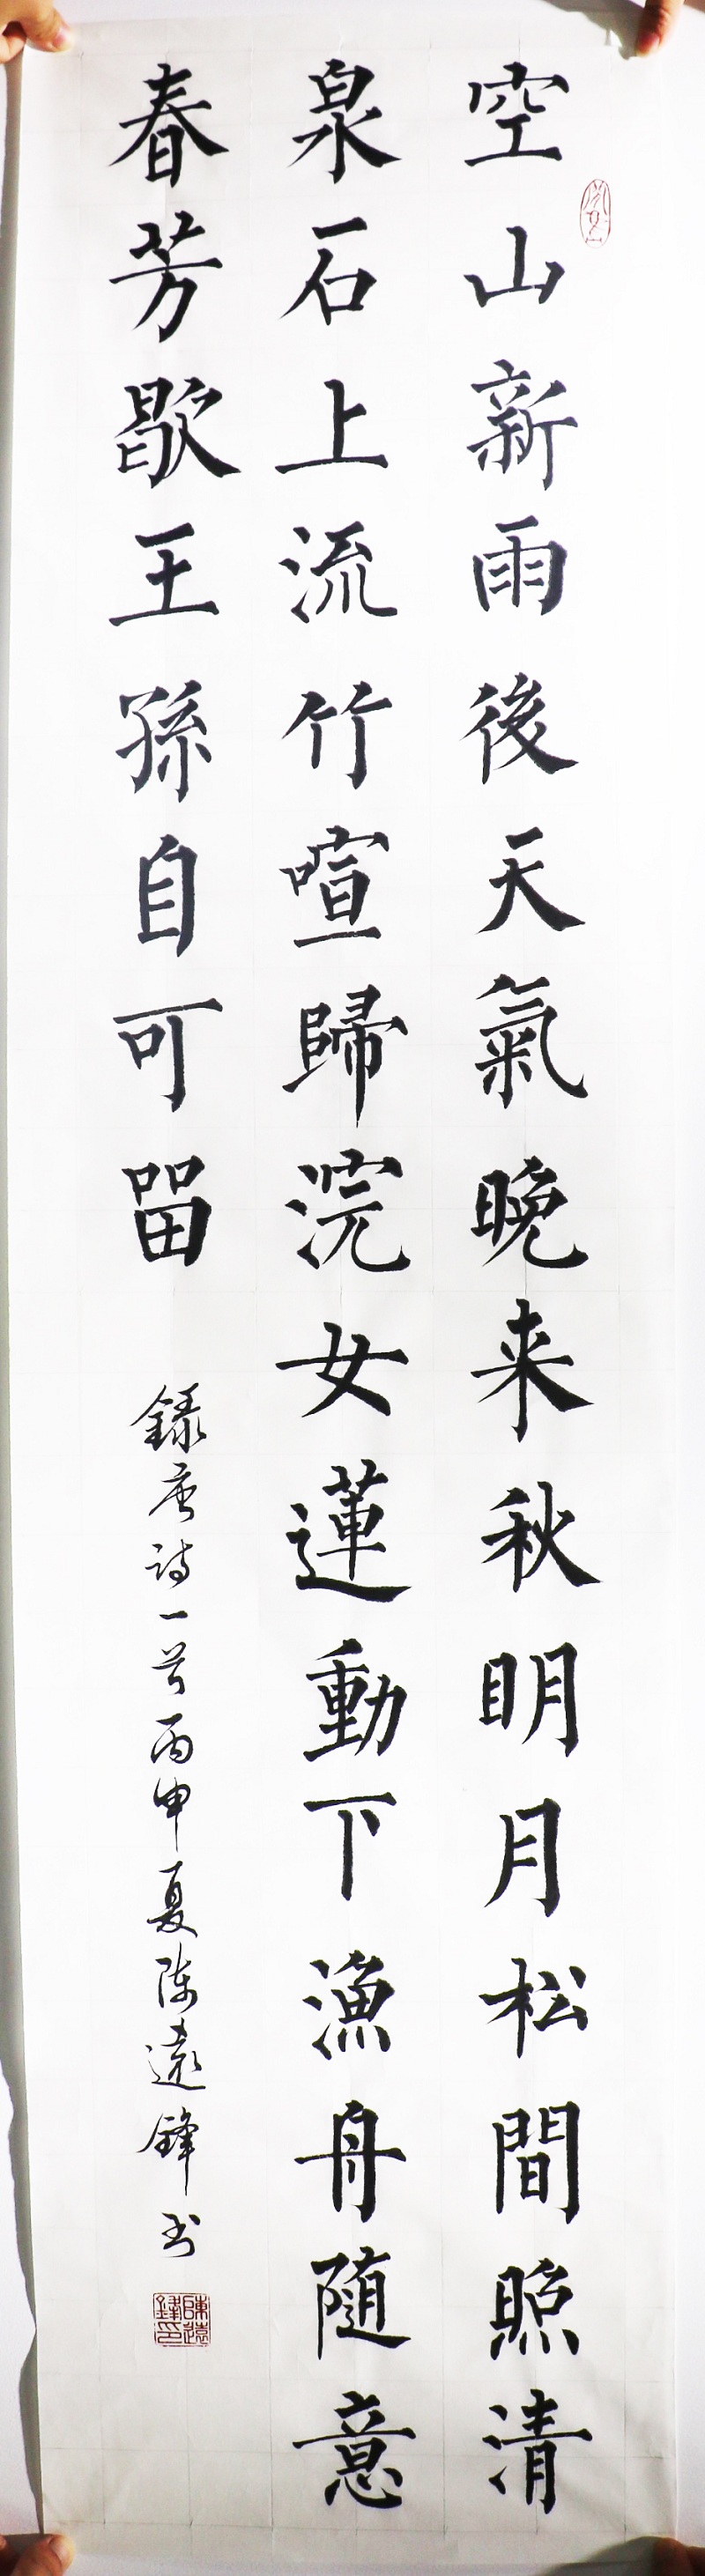 空山新雨後天氣晚来秋明月松間照清
泉石上流竹喧歸浣女蓮動下漁舟隨意
春芳歇王孫自可留
錄唐詩一首丙申夏陳遠鋒书
陳遠鋒印